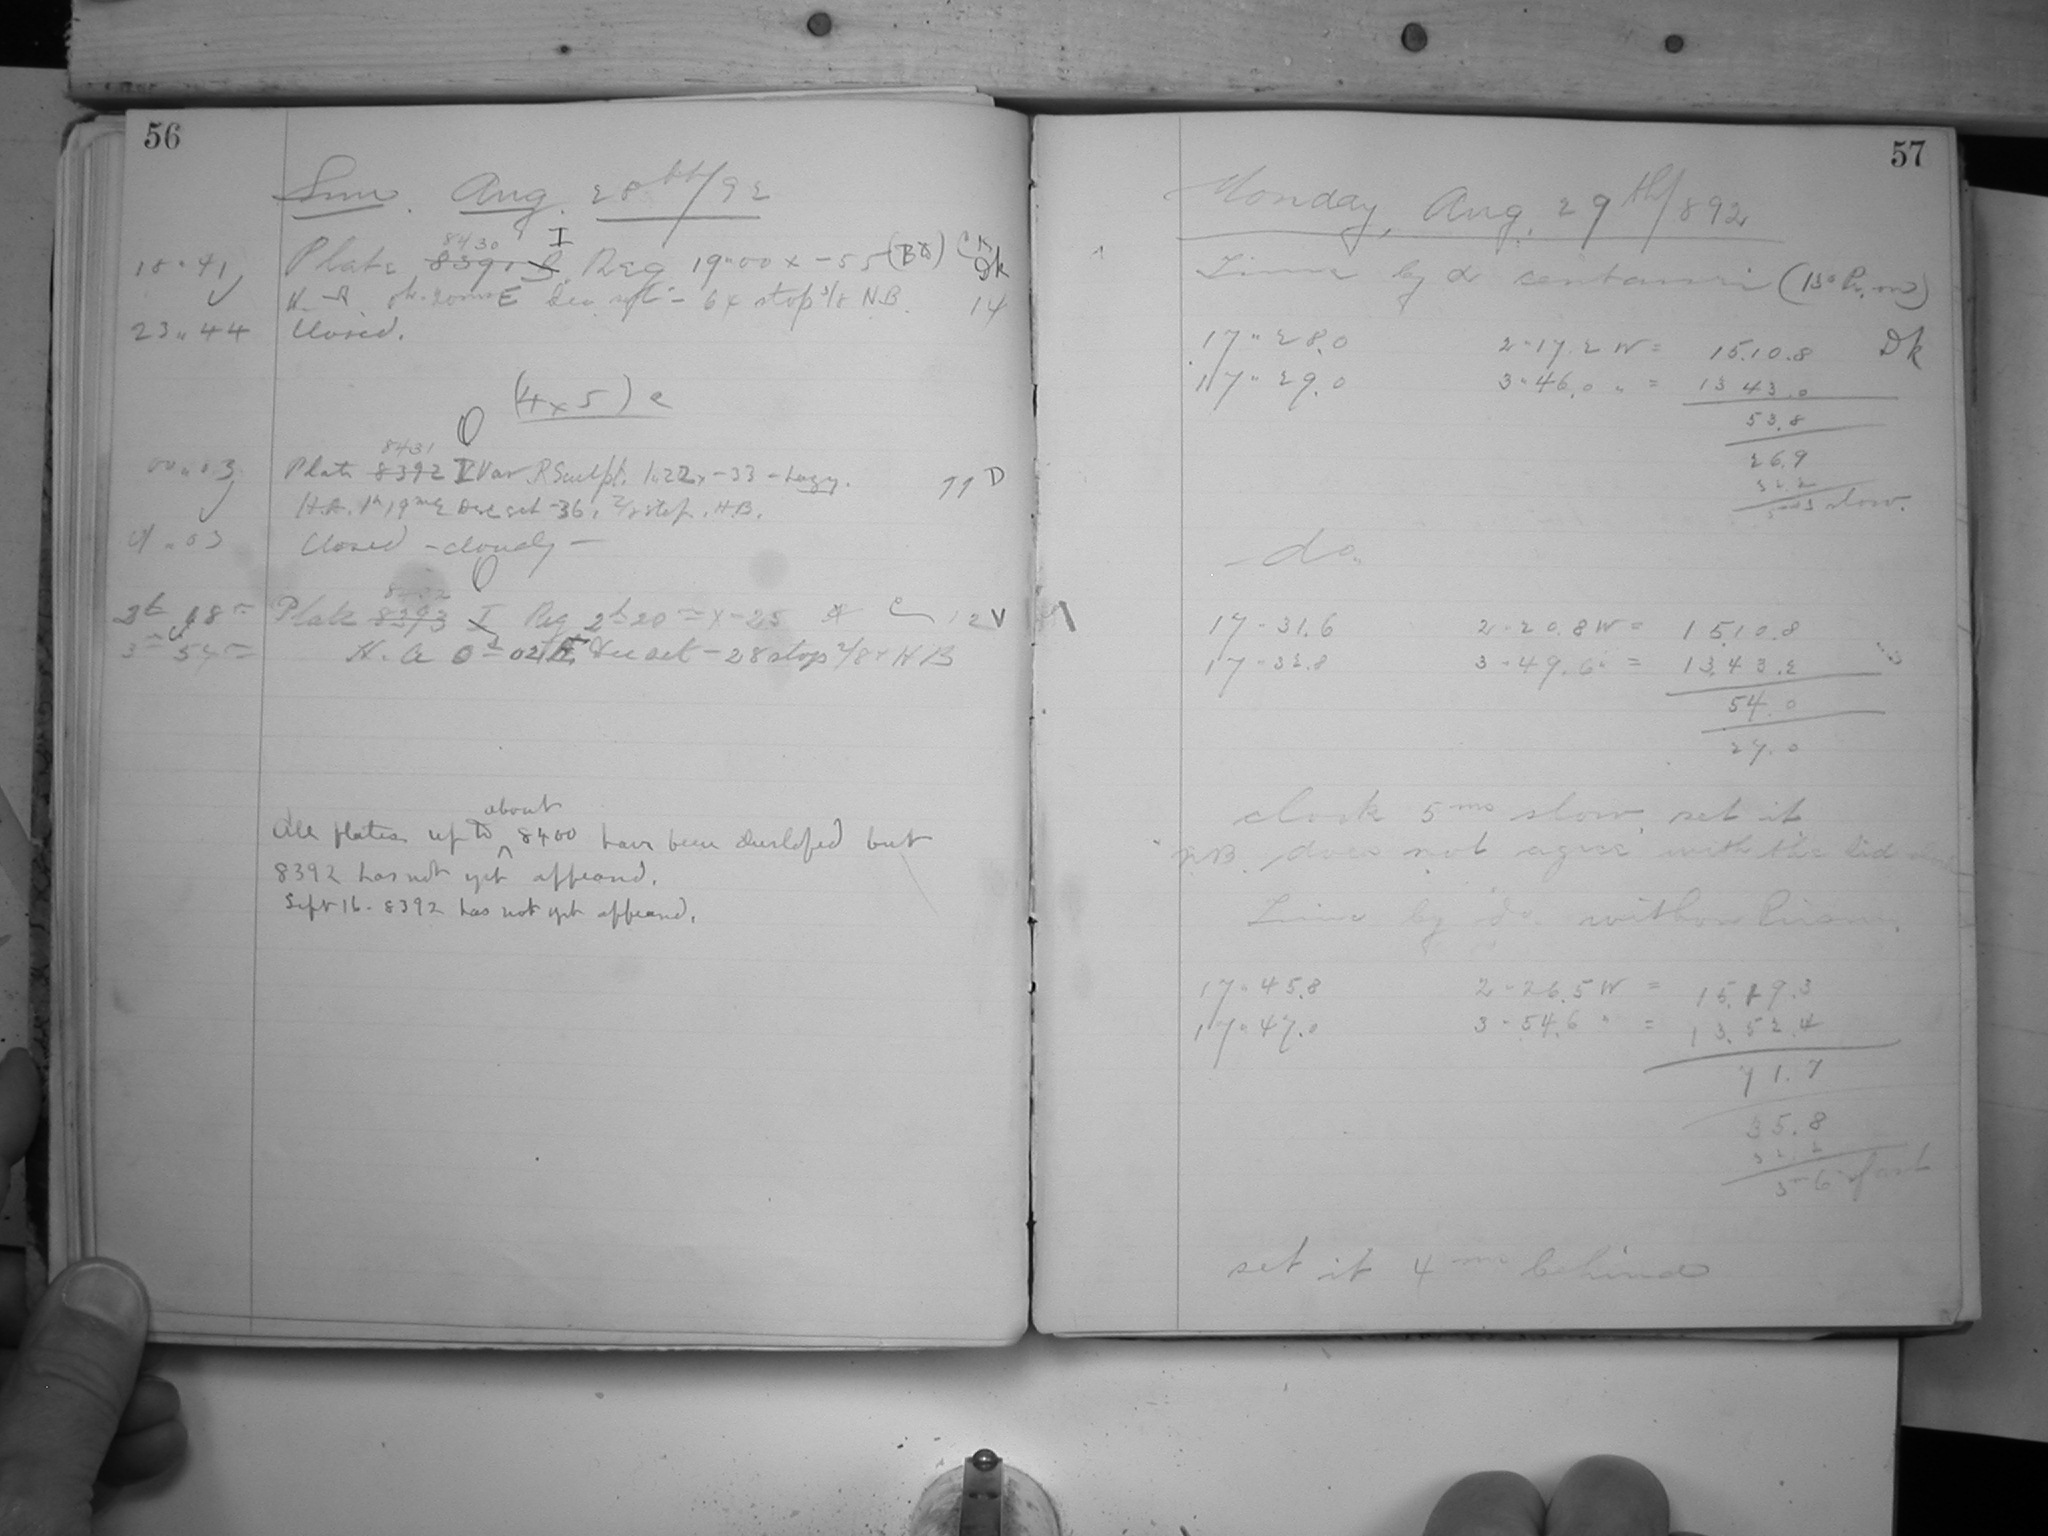 56
Sun. Aug. 28th/92
8430 I
18"41 Plate 8391 Reg 19"00 x -55
20m E Dec set - 6 x stop 3/8 N.B. 14
23"44 Closed.
(4x5) e
8431
00"03 Plate 8392 I Var. R Sculpt. 1.22 x -33 - hazy. 11 D
H.A. 1h 19m E Dec set -36. stop. H.B.
01"03 Closed - cloudy -
2h 18m Plate 8393 I Reg 2h 20m x -25 12 V
3h 54m H.A 0h 02m Dec set - 28 stop H B
about
All plates up to 8400 have been developed but
8392 has not yet appeared.
Sept 16. 8392 has not yet appeared.
57
Monday, Aug. 29th/892
Time by α centauri (13° Pr. on)
17"28.0 2"17.2 W = 15.10.8 Dk
17"29.0 3"46.0 " = 13 43.0
53.8
26.9
32.2
slow.
do.
17"31.6 2"20.8 W = 15.10.8
17"32.8 3"49.6 " = 13.43.2
54.0
27.0
clock 5ms slow. set it
N.B. does not agree with the sid
Time by do. without Prism.
17"45.8 2"26.5 W = 15.19.3
17"47.0 3"54.6 " = 13.52.4
71.7
35.8
32.2
fast
set it 4ms behind